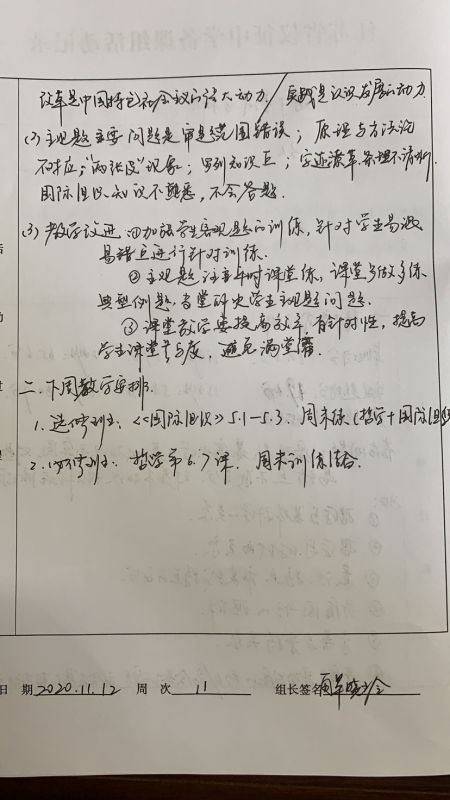 改革是中国特色社会主义的强大动力/实践是认识发展的动力.
(2)主观题主要问题是审题范围错误；原理与方法论
不对应；"两张皮"现象；罗列知识点；字迹潦草.条理不清晰.
国际组织知识不熟悉，不会答题.
(3)教学改进 ①加强学生客观题的训练，针对学生易混
易错点进行针对训练.
②主观题注重平时课堂练，课堂多做多练
典型例题，当堂研究学生主观题问题.
③课堂教学要提高效率，有针对性，提高
学生课堂参与度，避免满堂灌.
二.下周教学安排.
1.选修班：《国际组织》5.1-5.3.周末练(哲学+国际组织
2.必修班：哲学第6.7课. 周末训练结合.
日 期 2020.11.12 周 次 11 组长签名